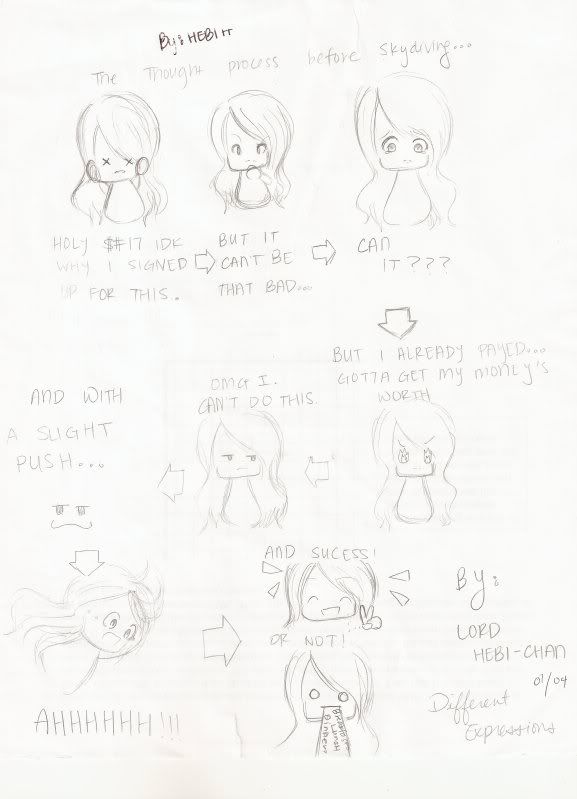 By: HEBI !!
The Thought process before skydiving...
HOLY $#!7 IDK
WHY I SIGNED
UP FOR THIS.
BUT IT
CAN'T BE
THAT BAD...
CAN
IT???
BUT I ALREADY PAYED...
GOTTA GET MY MONEY'S
WORTH
OMG I.
CAN'T DO THIS.
AND WITH
A SLIGHT
PUSH...
AHHHHHH!!!
AND SUCESS!
OR NOT!
BREAKFAST
LUNCH
DINNER
By:
LORD
HEBI-CHAN
01/04
Different
Expressions